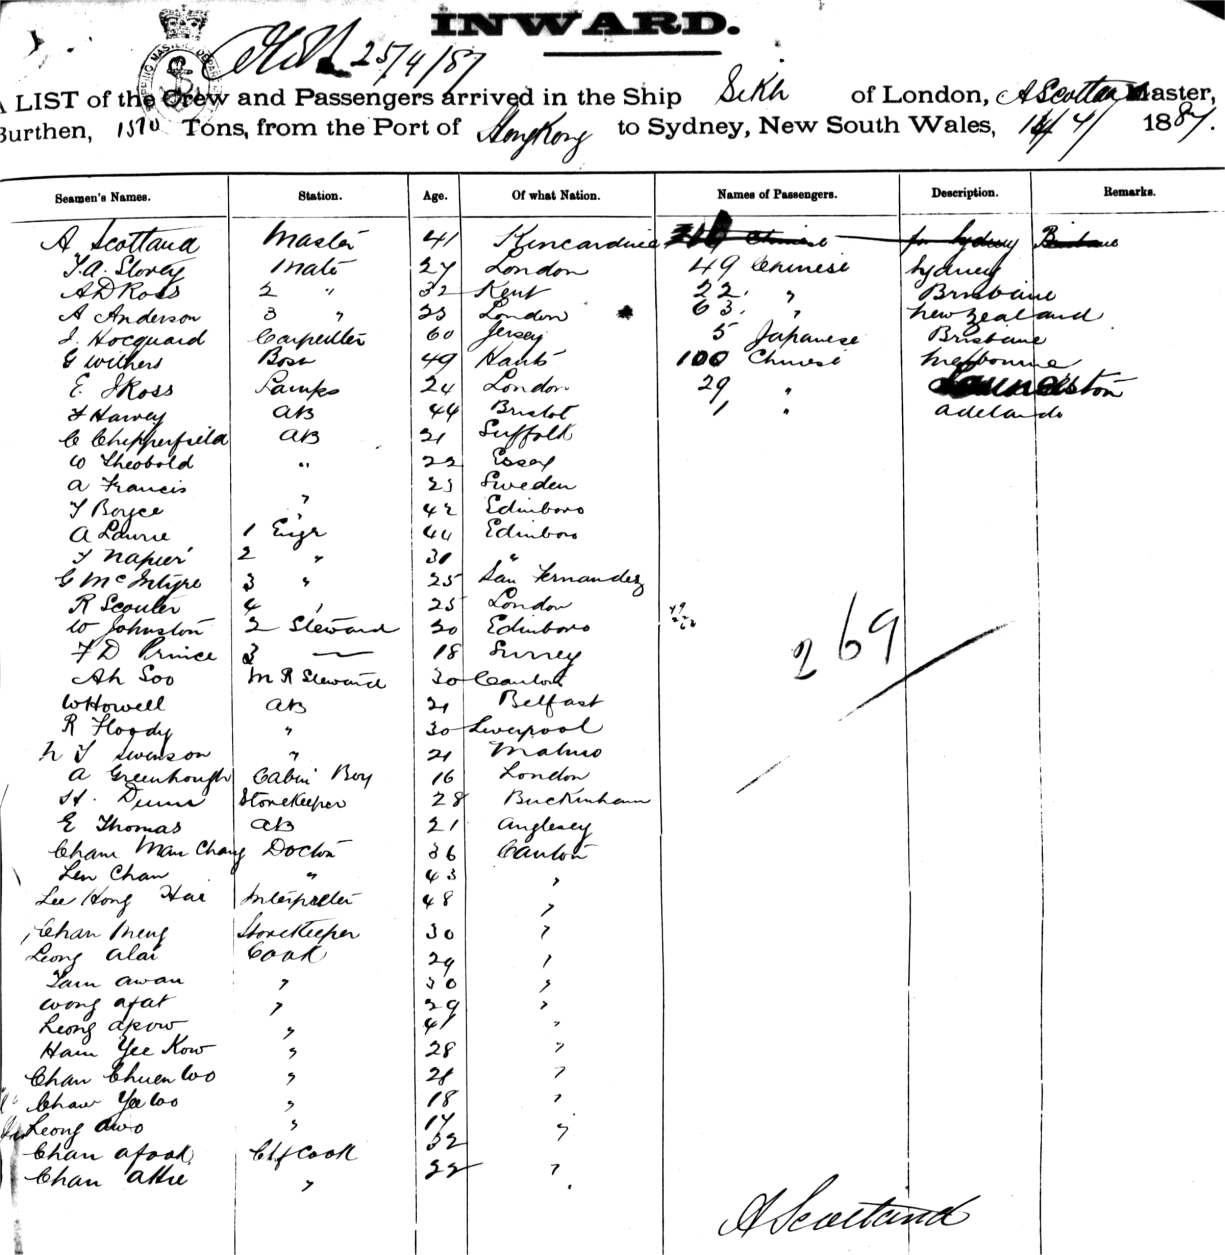 INWARD.
25/4/87
A LIST of the Crew and Passengers arrived in the Ship Sikh of London, A Scotland Master,
Burthen, 1570 Tons, from the Port of HongKong to Sydney, New South Wales, 1887.
Seamen's Names. Station. Age. Of what Nation. Names of Passengers. Description. Remarks.
A Scotland Master 41 Kincardine Chinese for Sydney Brisbane
T.A. Storey Mate 27 London 49 Chinese Sydney
A D Ross 2 " 32 Kent 22 " Brisbane
A Anderson 3 " 23 London 63 " New Zealand
J. Hocquard Carpenter 60 Jersey 5 Japanese Brisbane
G Withers Bosn 49 Hants 100 Chinese Melbourne
E. J Ross Lamps 24 London 29 " Launceston
F Harvey AB 44 Bristol 1 " Adelaide
C Chipperfield AB 21 Suffolk
W Theobald " 22 Essex
A Francis 23 Sweden
T Boyce " 42 Edinboro
A Laurie 1 Engr 44 Edinboro
T Napier 2 " 31 "
G McIntyre 3 " 25 San Fernandez
R Scouler 4 " 25 London
W Johnston 2 Steward 30 Edinboro
F D Prince 3 — 18 Surrey
269
Ah Soo M R Steward 30 Canton
W Howell AB 21 Belfast
R Floody " 30 Liverpool
N T Swenson " 21 Malmo
A Greenhough Cabin Boy 16 London
H. Dunn Storekeeper 28 Buckinham
E Thomas AB 21 Anglesey
Cham Man Chang Doctor 36 Canton
Len Chan " 43 "
Lee Hong Hai Interpreter 48 "
Chan Meng Storekeeper 30 "
Leong Alai Cook 29 "
Tam Awan " 30 "
Wong Afat " 29 "
Leong Apow " 41 "
Ham Yee Kow " 28 "
Chan Chuen Wo " 28 "
Chaw Yee Wo " 18 "
Leong Awo " 17 "
Chan Afook Chf Cook 32
Chan Akie " 22 "
A Scotland